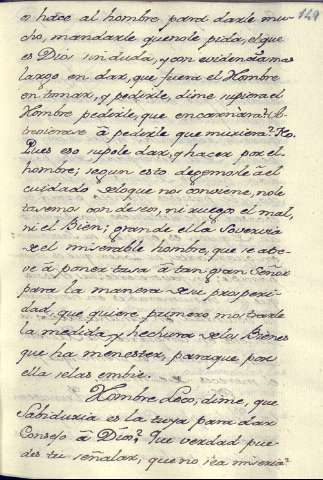 129
o hace al hombre para darle mu-
cho, mandarle que no le pida, el que
es Dios sin duda, y con evidencia mas
largo en dar, que fuera el Hombre
en tomar, y pedirle, dime supiera el
Hombre pedirle, que encarnara? A-
trevierase à pedirle que muriera? No.
Pues eso supole dar, y hacer por el
hombre; segun esto dejemosle à el
cuidado de lo que nos conviene, no le
tasemos con deseo, ni ruego el mal,
ni el Bien; grande es la Sovervia
de el miserable hombre, que se atre-
ve à poner tasa à tan gran Señor
para la manera de su prosperi-
dad, que quiere primero mostrarle
la medida y hechura de los Bienes
que ha menester, para que por
ella se las embie.
Hombre Loco, dime, que
Sabiduria es la tuya para dar
Consejo à Dios? Que verdad pue-
des tu señalar, que no sea miseria?